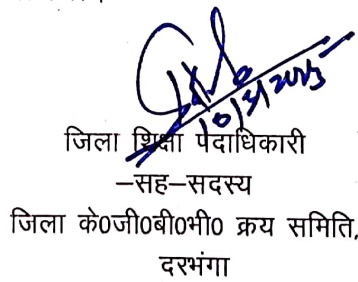 10/3/2023
जिला शिक्षा पदाधिकारी
–सह–सदस्य
जिला के0जी0बी0भी0 क्रय समिति,
दरभंगा